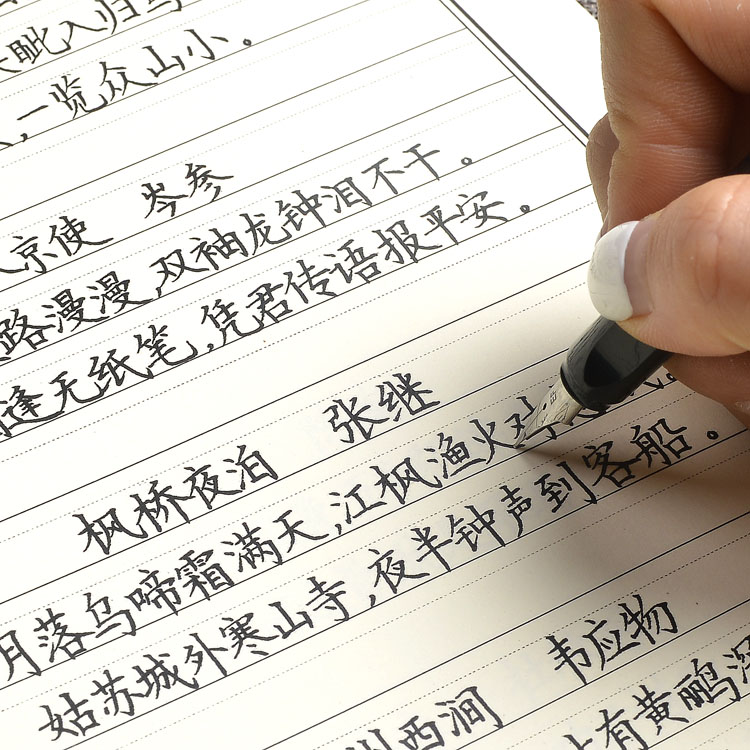 眦入归鸟
,一览众山小。
京使 岑参
路漫漫,双袖龙钟泪不干。
逢无纸笔,凭君传语报平安。
枫桥夜泊 张继
月落乌啼霜满天,江枫渔火对
姑苏城外寒山寺,夜半钟声到客船。
西涧 韦应物
有黄鹂深